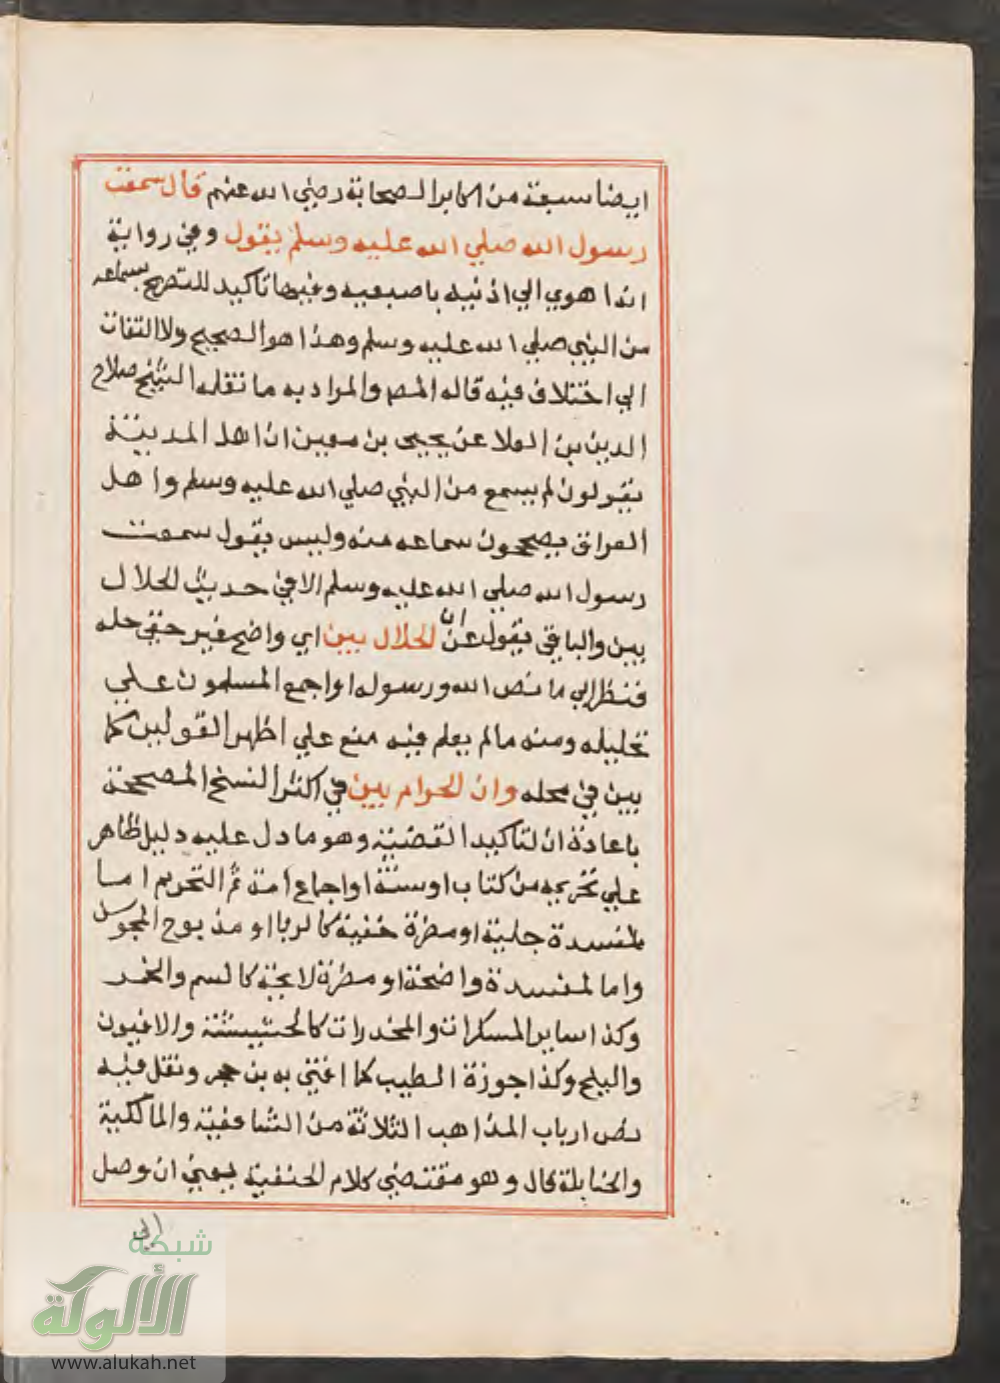 ايضا سبعة من اكابر الصحابة رضي الله عنهم قال سمعت
رسول الله صلي الله عليه وسلم يقول وفي رواية
انه اهوي الي اذنيه باصبعيه وغيرها تاكيد للتصريح بسماعه
من النبي صلي الله عليه وسلم وهذا هو الصحيح ولا التفات
الي اختلاف فيه قاله المص والمراد به ما نقله الشيخ صلاح
الدين بن العلا عن يحيى بن معين ان اهل المدينة
يقولون لم يسمع من النبي صلي الله عليه وسلم واهل
العراق يصححون سماعه منه وليس يقول سمعت
رسول الله صلي الله عليه وسلم الا في حديث الحلال
بين والباقي يقول عن ان الحلال بين اي واضح غير خفي حله
فننظر الي ما نص الله ورسوله او اجمع المسلمون علي
تحليله ومنه ما لم يعلم فيه منع علي اظهر القولين كما
بين في محله وان الحرام بين في اكثر النسخ المصححة
باعادة ان لتاكيد القضية وهو ما دل عليه دليل ظاهر
علي تحريمه من كتاب او سنة او اجماع امة ثم التحريم اما
لمفسدة جلية او مضرة خفية كالربا او مذبوح المجوس
واما لمفسدة واضحة او مضرة لايحة كالسم والخمر
وكذا ساير المسكرات والمخدرات كالحشيشة والافيون
والبنج وكذا جوزة الطيب كما افتي به بن حجر ونقل فيه
نص ارباب المذاهب الثلاثة من الشافعية والمالكية
والحنابلة قال وهو مقتضي كلام الحنفية يعني ان وصل
الي
شبكة
الألوكة
www.alukah.net